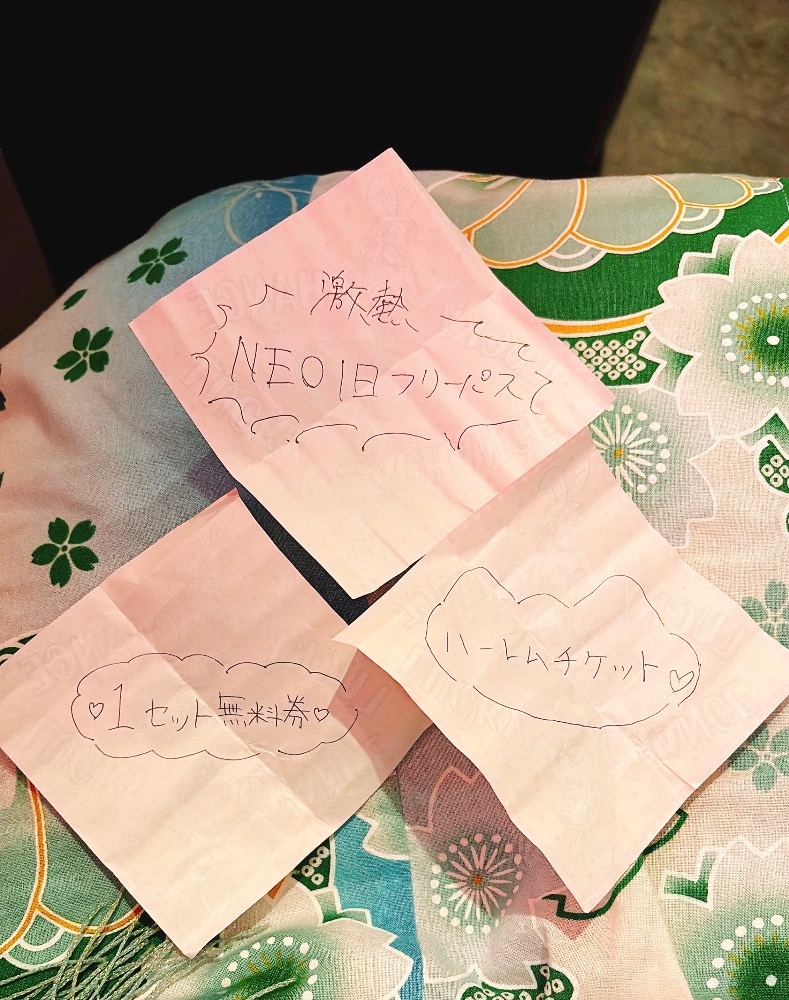 激熱
NEO1日フリーパス
♡1セット無料券♡
ハーレムチケット♡